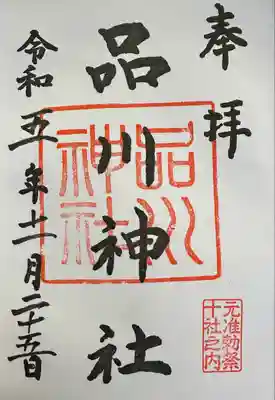 奉拝
品川神社
品川神社
元准勅祭
十社之内
令和五年十一月二十五日